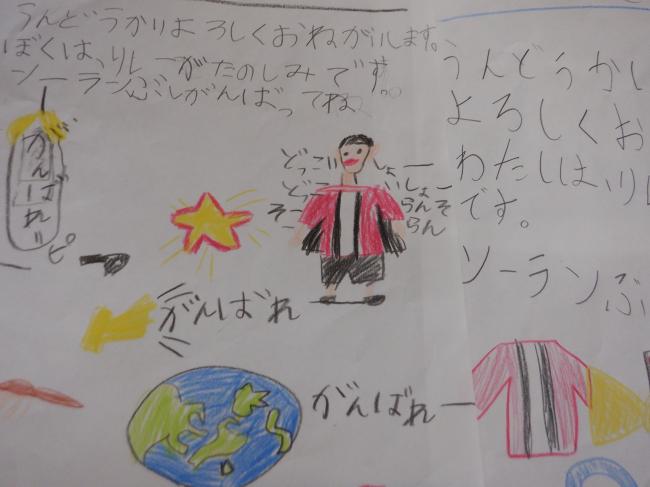 うんどうかいよろしくおねがいします。
ぼくは、りレーがたのしみです。
ソーランぶしがんばってね
がんばれ!!
ピ
どっこいしょー
どっこいしょー
そーらんそーらん
がんばれ
がんばれー
うんどうかい
よろしくお
わたしは、リレ
です。
ソーランぶ